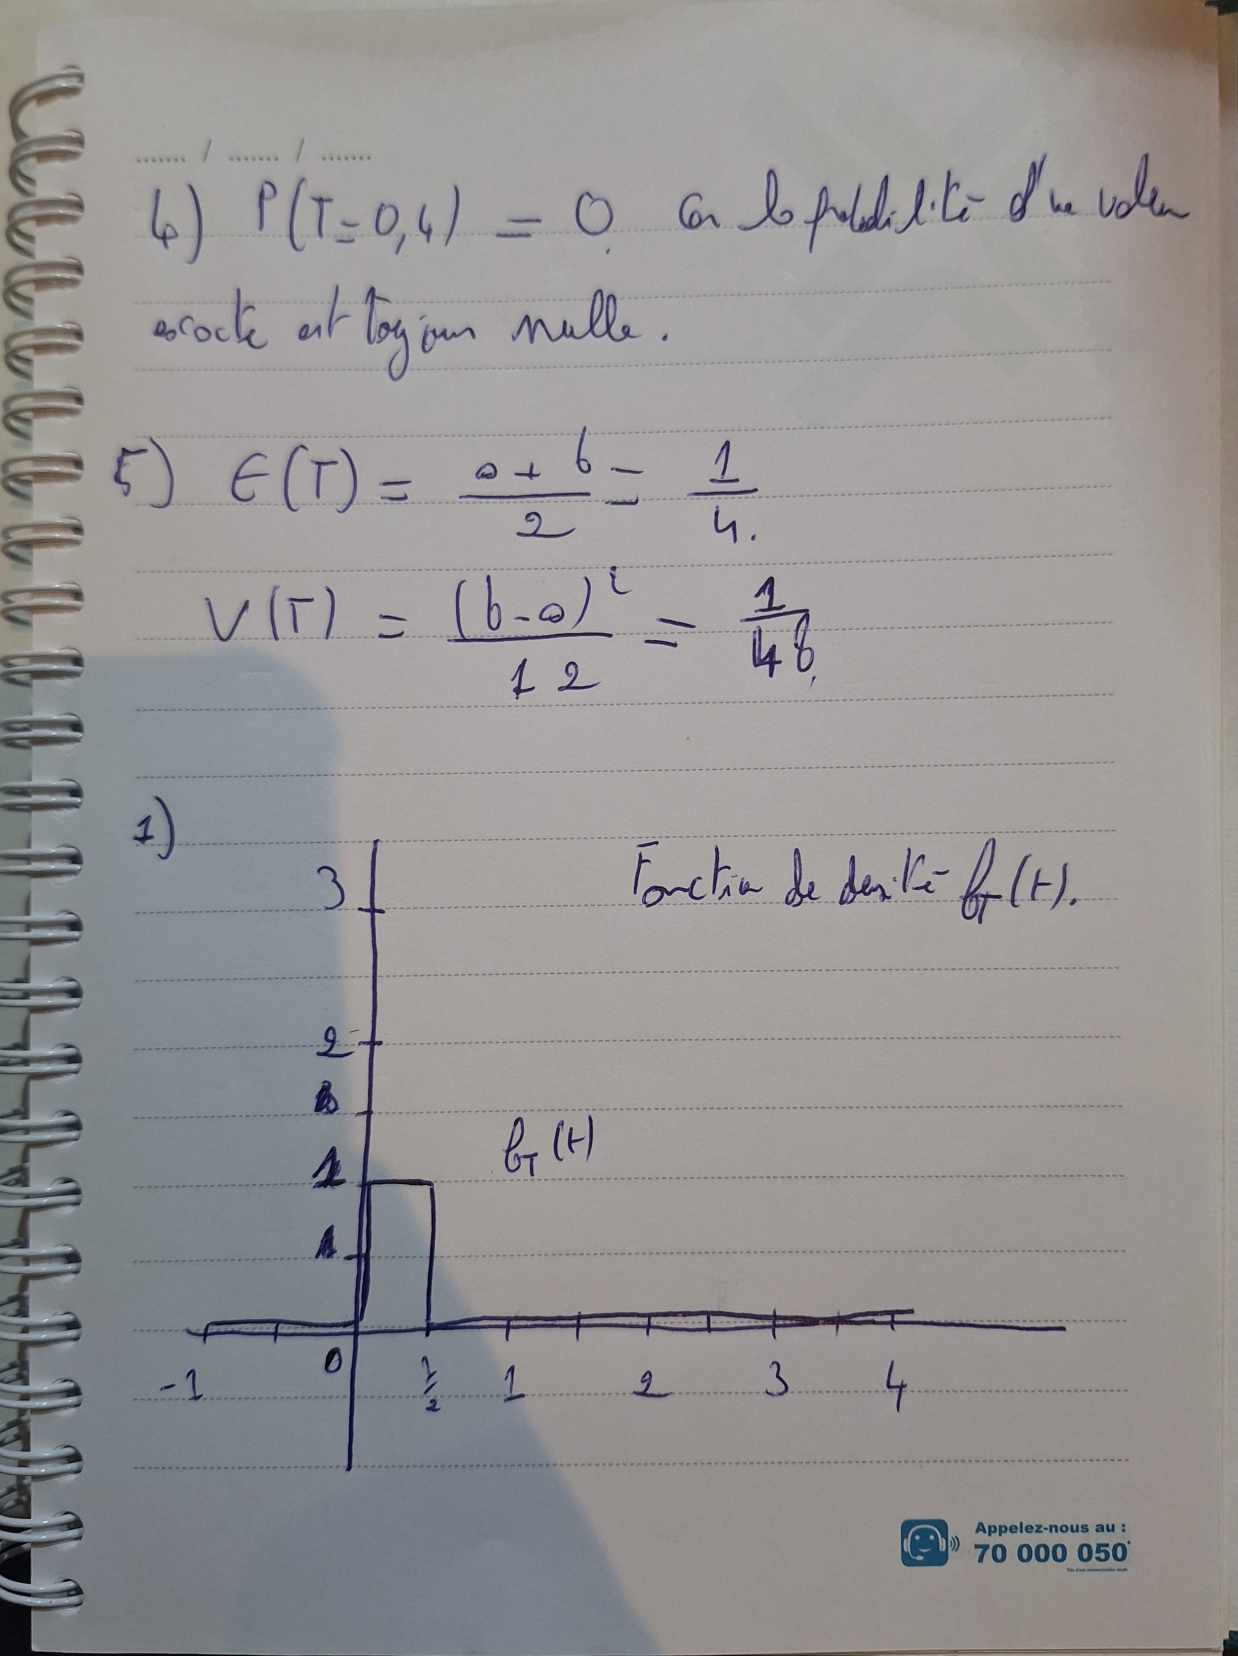 ....... / ....... / .......
4) P(T=0,4) = 0 car la probabilité d'une valeur
exacte est toujours nulle.
5) E(T) = (a + b)/2 = 1/4.
V(T) = (b-a)²/12 = 1/48.
1)
3
Fonction de densité f_T(t).
2
f_T(t)
1
1
0
-1 1/2 1 2 3 4
Appelez-nous au :
70 000 050